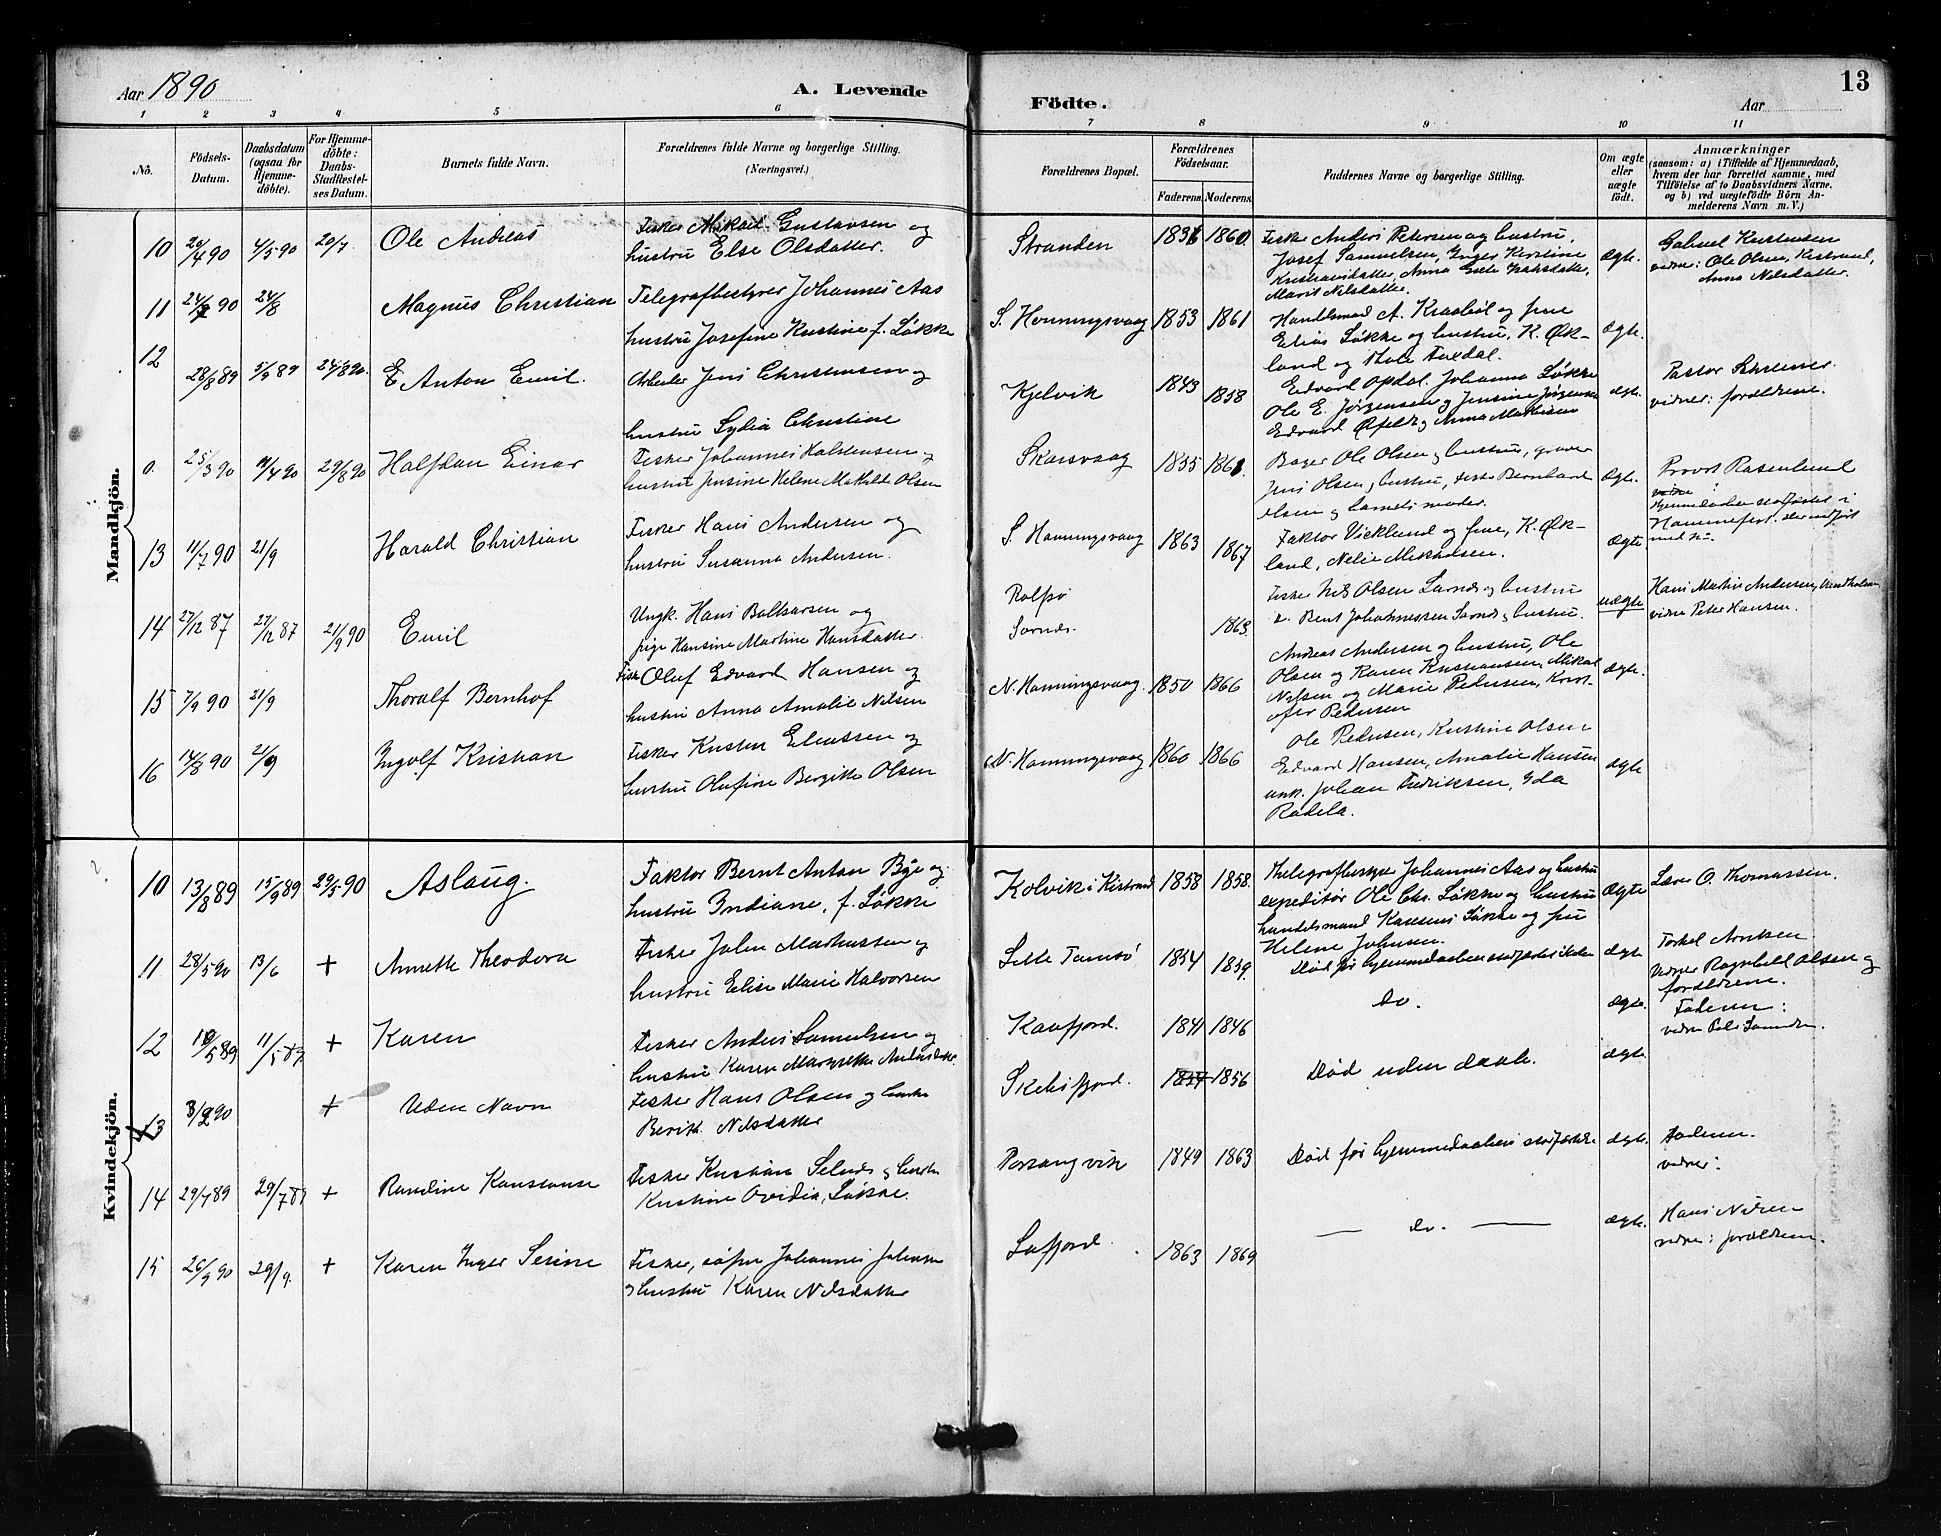 Aar 1890
A. Levende
Födte.
Aar
13
1 2 3 4 5 6 7 8 9 10 11
No.
Födsels-Datum.
Daabsdatum (ogsaa for Hjemme-döbte).
For Hjemme-döbte: Daabs-Stadfæstel-ses Datum.
Barnets fulde Navn.
Forældrenes fulde Navne og borgerlige Stilling. (Næringsvei.)
Forældrenes Bopæl.
Forældrenes Födselsaar.
Faderens. Moderens.
Faddernes Navne og borgerlige Stilling.
Om ægte eller uægte födt.
Anmærkninger
(saasom: a) i Tilfælde af Hjemmedaab,
hvem der har forrettet samme, med
Tilföielse af to Daabsvidners Navne,
og b) ved uægtefödte Börn An-
melderens Navn m. V.)
Mandkjön.
10 20/4 90 4/5 90 20/7. Ole Andreas
Fisker Mikael Gustavsen og
hustru Else Olsdatter.
Stranden 1860
Fisker Anders Petersen og hustru,
Josef Samuelsen, Inger Kirstine
Marit Nilsdatter.
ægte.
vidner: Ole Olsen, Kistrand,
Anna Nilsdatter.
11 90 24/8 Magnus Christian
Telegrafbestyrer Johannes Aas
hustru Josefine Kristine f. Løkke
S. Honningsvaag 1853 1861
Handelsmand A. Krasbøl og frue
Elias Løkke og hustru, K. Øk-
land og
ægte.
12 28/8 89 5/9 89 24/8 90. Anton Emil.
Arbeider Jens Christensen og
hustru Lydia Christine
Kjelvik 1843 1858
Edvard Opdal. Johanna Løkke
Ole E. Jørgensen og Jensine Jørgensen
Edvard og Anna Mathisen
ægte.
Pastor Schreiner.
vidner: forældrene.
0. 25/3 90 4/90 29/8 90 Halfdan Einar
Fisker Johannes Halstensen og
hustru Jensine Helene Mathilde Olsen
Skarsvaag 1855
Bager Ole Olsen og hustru, graver
Jens Olsen og hustru, fisker Bernhard
Olsen og barnets moder.
ægte.
Provst Rosenlund
Hjemmedaaben stadfæstet i
Hammerfest.
13 11/7 90 21/9 Harald Christian
Fisker Hans Andersen og
hustru Susanna Andersen.
S. Honningsvaag 1863 1867
Faktor Vicklund og frue, K. Øk-
land, Nelie Mikalsen.
ægte
14 27/12 87 27/12 87 21/9 90 Emil
Ungk. Hans Baltsarsen og
pige Hansine Martine Hansdatter.
Rolfsø
Sarnes. 1863
Fisker Nils Olsen Sarnes og hustru
Bent Johannessen Sarnes og hustru.
uægte
Hans Martin Andersen,
vidne Peter Hansen.
15 7/9 90 21/9 Thoralf Bernhof
Fisker Oluf Edvard Hansen og
hustru Anna Amalie Nilsen
N. Honningsvaag. 1850 1866
Andreas Andersen og hustru, Ole
Olsen og Karen Kristiansen, Mikal
Nilsen og Marie Pedersen, Krist-
ofer Pedersen
ægte.
16 14/8 90 21/9 Ingolf Kristian
Fisker Kristen Eliassen og
hustru Olufine Bergitte Olsen
N. Honningsvaag 1860 1866
Ole Pedersen, Kristine Olsen
Edvard Hansen, Amalie Hansen
unk. Johan Fredriksen, Ida
ægte
Kvindekjön.
10 13/8 89 15/9 89 29/5 90 Aslaug.
Faktor Bernt Anton Bye og
hustru Indiane, f. Løkke
Kolvik i Kistrand 1858 1858.
Thelegrafbestyrer Johannes Aas og hustru
expeditør Ole Chr. Løkke og hustru
handelsmand Løkke og frue
Helene Johnsen.
ægte
Lærer O. Thomassen.
11 28/5 90 13/6 + Annette Theodora
Fisker Johan Markussen og
hustru Elise Marie Halvorsen
Lille Tamsø 1854 1859.
Død før hjemmedaaben stadfæstedes
ægte
Vidner Ragnhild Olsen og
forældrene.
12 /5 89 11/5 89 + Karen
Fisker Anders Samuelsen og
hustru Karen Margrethe
Kaafjord. 1841 1846
do.
ægte.
Faderen:
13 3/2 90 + Uden Navn
Fisker Hans Olsen og hustru
Berith Nilsdatter
1856
Død uden daab.
ægte.
14 29/7 89 29/7 89 + Randine Konstanse
Fisker Kristian og hustru
Kristine Ovidia, Løkke.
Porsangvik 1849 1863
Død før hjemmedaabens stadfæstelse
ægte.
Faderen.
vidner:
15 26/9 90 29/9. + Karen Inger Serine
Fisker, søfin Johannes Johnsen
og hustru Karen Nilsdatter
1863 1869
do.
ægte.
Hans Nilsen
vidne: forældrene.